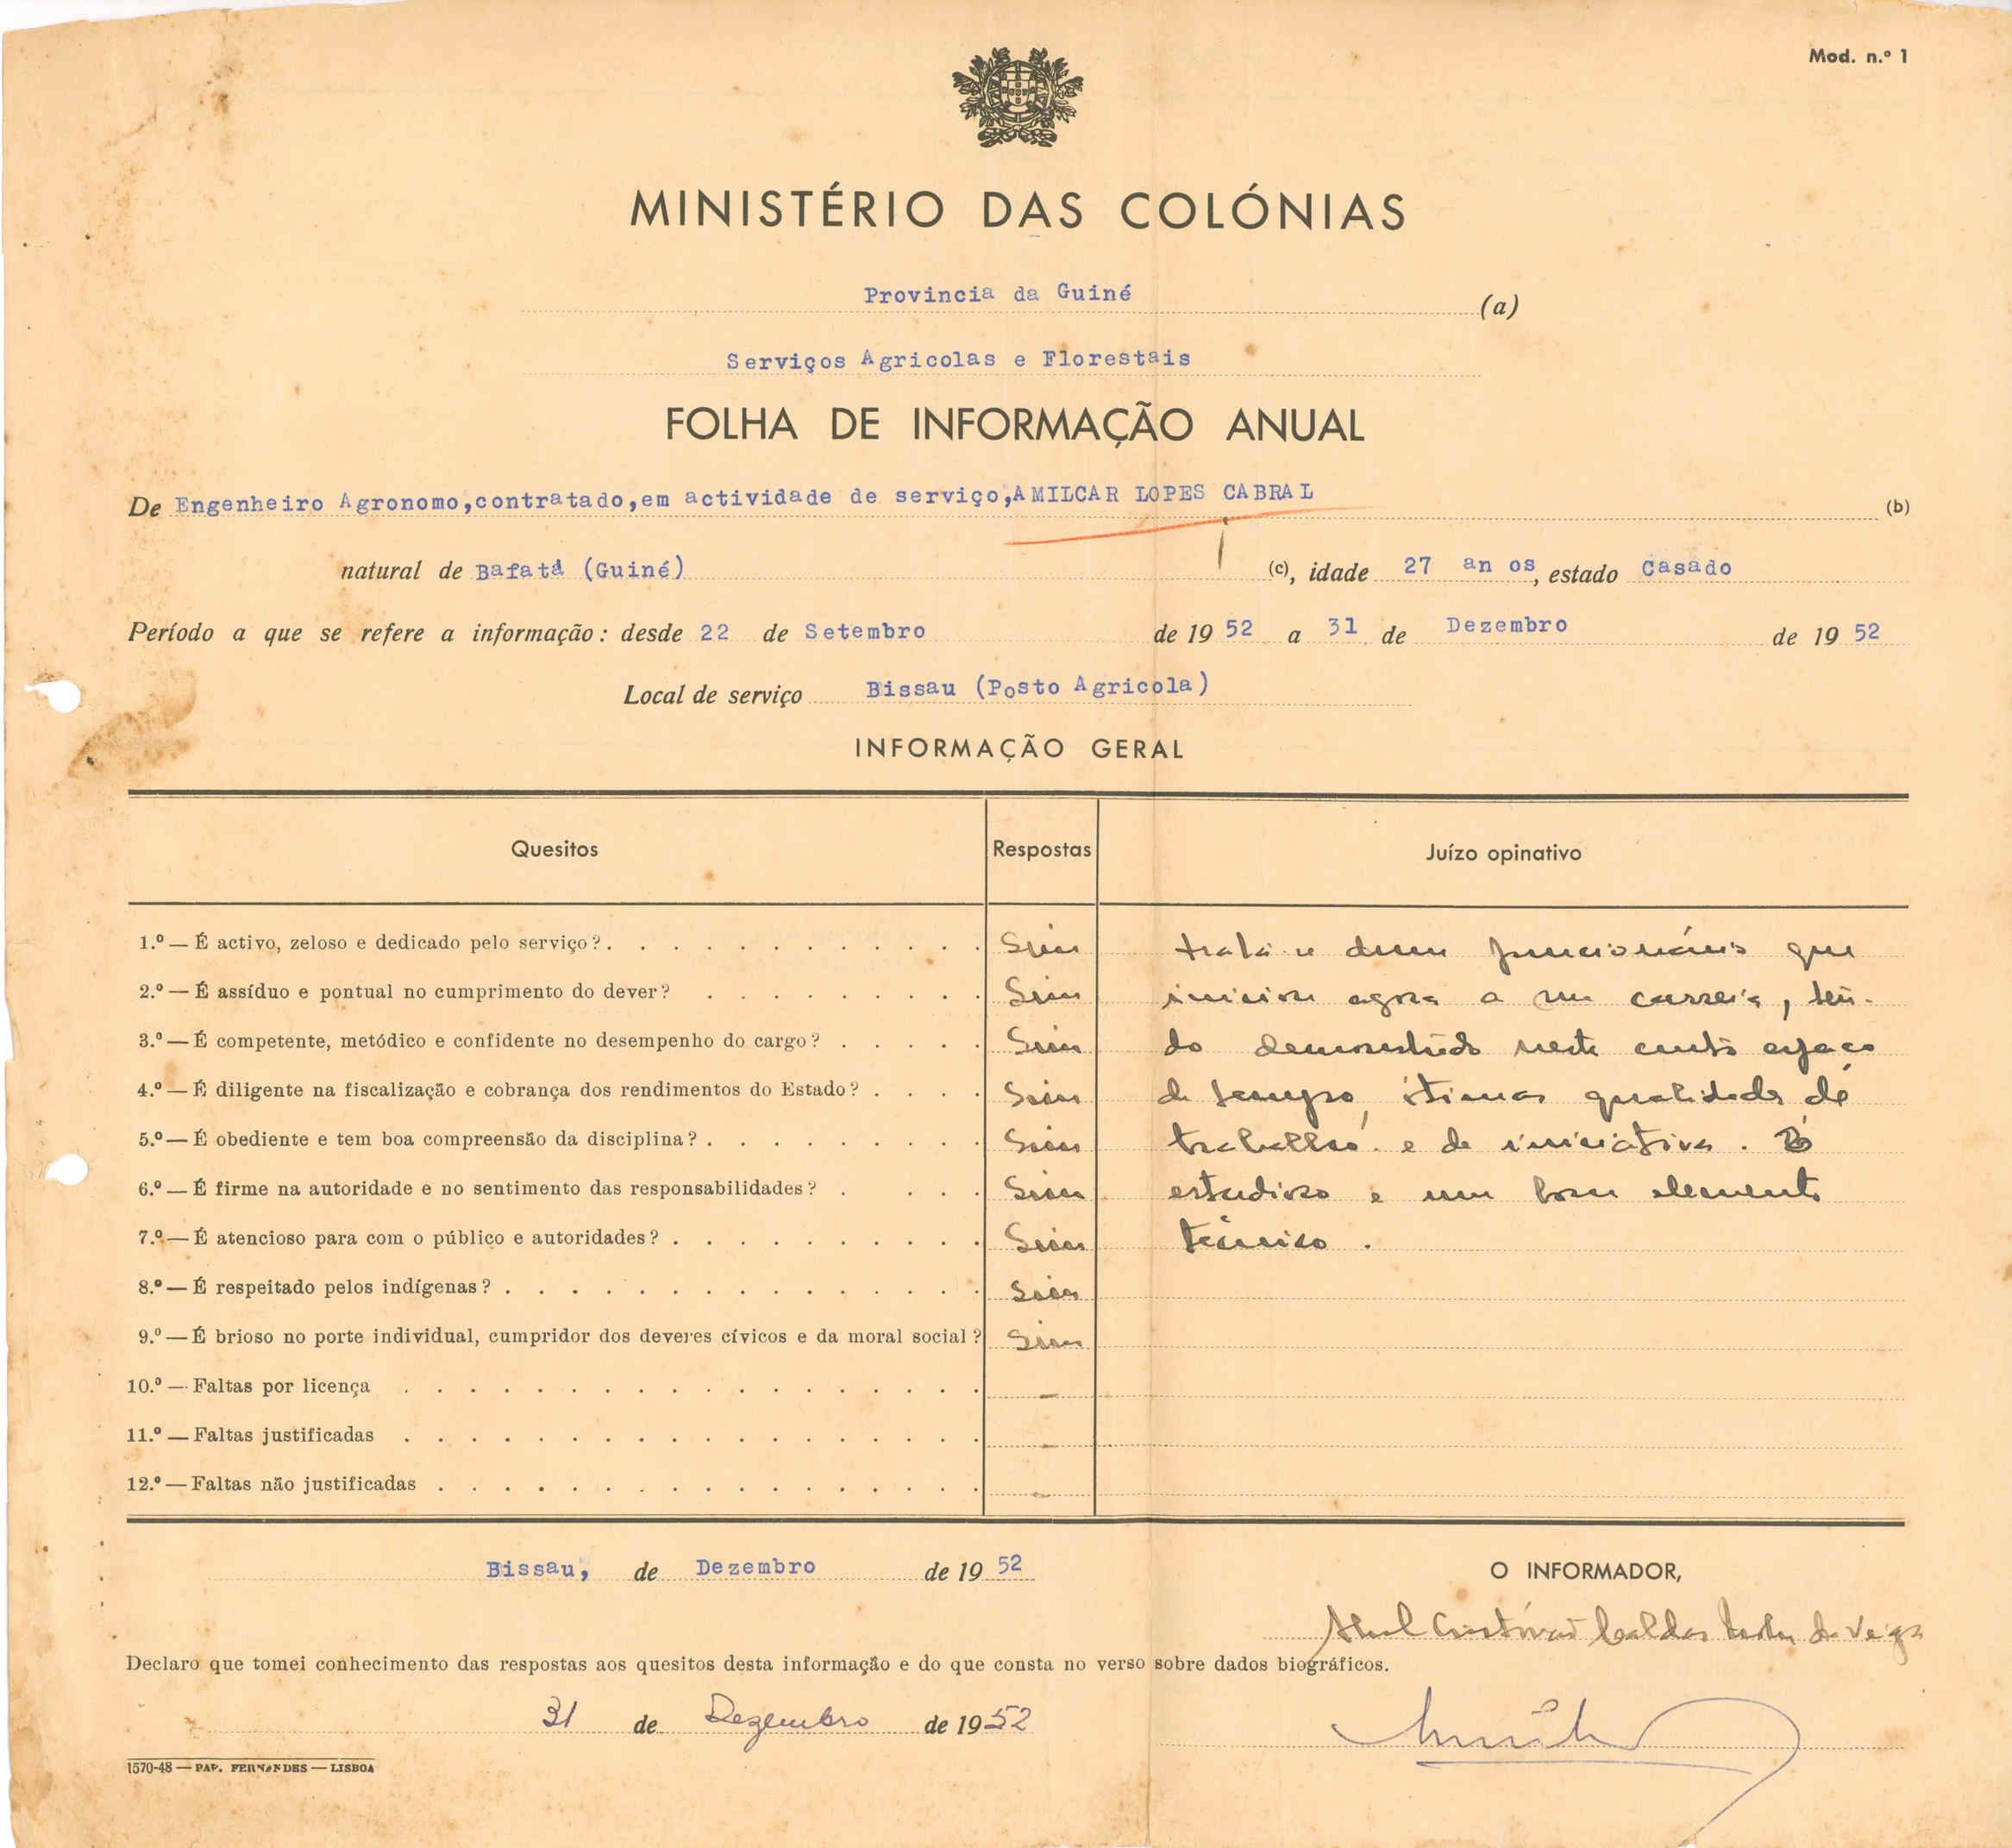 Mod. n.º 1
MINISTÉRIO DAS COLÓNIAS
Provincia da Guiné (a)
Serviços Agricolas e Florestais
FOLHA DE INFORMAÇÃO ANUAL
De Engenheiro Agronomo,contratado,em actividade de serviço,AMILCAR LOPES CABRAL (b)
natural de Bafatá (Guiné) (c), idade 27 anos, estado Casado
Período a que se refere a informação: desde 22 de Setembro de 1952 a 31 de Dezembro de 1952
Local de serviço Bissau (Posto Agricola)
INFORMAÇÃO GERAL
Quesitos Respostas Juízo opinativo
1.º — É activo, zeloso e dedicado pelo serviço? Sim trata-se dum funcionário que
2.º — É assíduo e pontual no cumprimento do dever? Sim iniciou agora a sua carreira, ten-
3.º — É competente, metódico e confidente no desempenho do cargo? Sim do demonstrado neste curto espaço
4.º — É diligente na fiscalização e cobrança dos rendimentos do Estado? Sim de tempo, ótimas qualidades de
5.º — É obediente e tem boa compreensão da disciplina? Sim trabalho e de iniciativa. É
6.º — É firme na autoridade e no sentimento das responsabilidades? Sim estudioso e um bom elemento
7.º — É atencioso para com o público e autoridades? Sim técnico.
8.º — É respeitado pelos indígenas? Sim
9.º — É brioso no porte individual, cumpridor dos deveres cívicos e da moral social? Sim
10.º — Faltas por licença —
11.º — Faltas justificadas —
12.º — Faltas não justificadas —
Bissau, de Dezembro de 1952
O INFORMADOR,
Caldas da Veiga
Declaro que tomei conhecimento das respostas aos quesitos desta informação e do que consta no verso sobre dados biográficos.
31 de Dezembro de 1952
1570-48 — PAP. FERNANDES — LISBOA